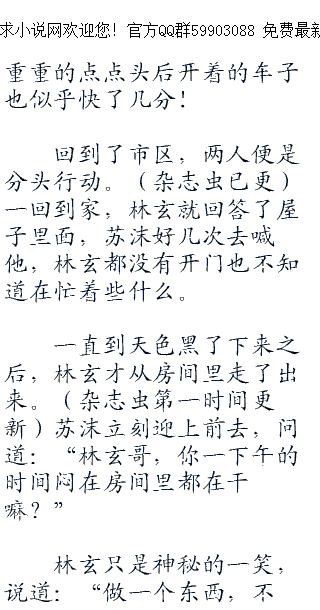 求小说网欢迎您！官方QQ群59903088 免费最新
重重的点点头后开着的车子
也似乎快了几分！
回到了市区，两人便是
分头行动。（杂志虫已更）
一回到家，林玄就回答了屋
子里面，苏沫好几次去喊
他，林玄都没有开门也不知
道在忙着些什么。
一直到天色黑了下来之
后，林玄才从房间里走了出
来。（杂志虫第一时间更
新）苏沫立刻迎上前去，问
道：“林玄哥，你一下午的
时间闷在房间里都在干
嘛？”
林玄只是神秘的一笑，
说道：“做一个东西，不